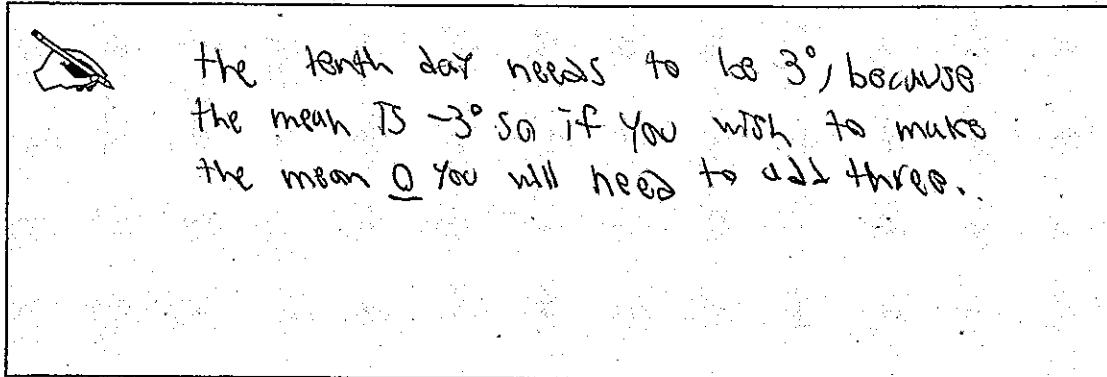 the tenth day needs to be 3°, because
the mean is -3° so if you wish to make
the mean 0 you will need to add three.